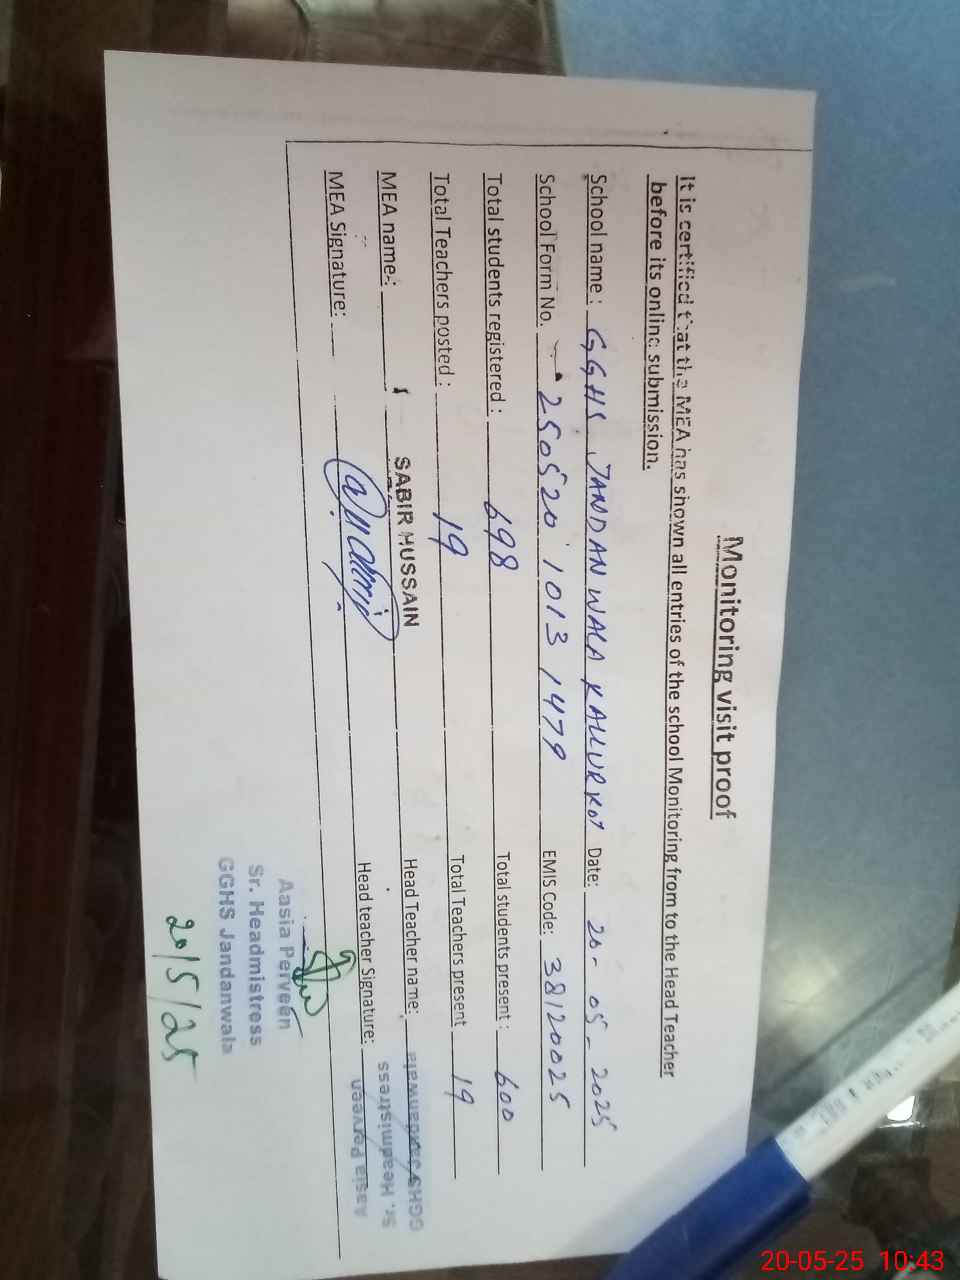 Monitoring visit proof
It is certified that the MEA has shown all entries of the school Monitoring from to the Head Teacher
before its online submission.
School name : GGHS JANDANWALA KALLURKOT Date: 20-05-2025
School Form No. 25052010131479 EMIS Code: 38120025
Total students registered : 698 Total students present : 600
Total Teachers posted : 19 Total Teachers present 19
MEA name: SABIR HUSSAIN Head Teacher name:
GGHS Jandanwala
Sr. Headmistress
Aasia Perveen
MEA Signature: Head teacher Signature:
Aasia Perveen
Sr. Headmistress
GGHS Jandanwala
20/5/25
20-05-25 10:43